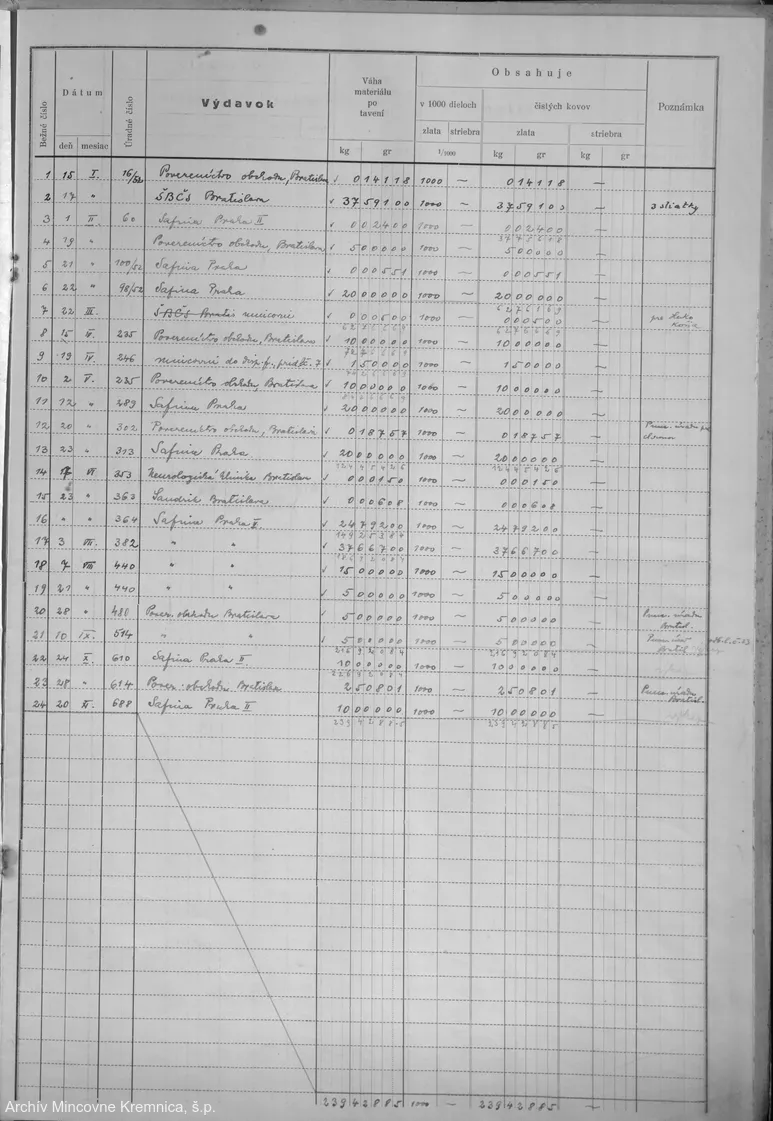 Obsahuje
Bežné číslo
Dátum
Úradné číslo
Výdavok
Váha
materiálu
po
tavení
v 1000 dieloch
čistých kovov
Poznámka
deň mesiac
zlata striebra
zlata striebra
kg gr 1/1000 kg gr kg gr
1 15 I. 16/52 Povereníctvo obchodu, Bratislava 014118 1000 — 014118 —
2 17 " ŠBČS Bratislava 3759100 1000 — 3759100 — 3 sliatky
3 1 II. 60 Safina Praha II 002400 1000 — 002400 —
4 19 " Povereníctvo obchodu, Bratislava 500000 1000 — 500000 —
5 21 " 100/52 Safina Praha 000551 1000 — 000551 —
6 22 " 98/52 Safina Praha 2000000 1000 — 2000000 —
7 22 III. ŠBČS mincovni 000500 1000 — 000500 — pre
8 15 IV. 235 Povereníctvo obchodu, Bratislava 1000000 1000 — 1000000 —
9 19 IV. 246 mincovni do 150000 1000 — 150000 —
10 2 V. 235 Povereníctvo obchodu, Bratislava 1000000 1000 — 1000000 —
11 12 " 289 Safina Praha 2000000 1000 — 2000000 —
12 20 " 302 Povereníctvo obchodu, Bratislava 018757 1000 — 018757 —
13 23 " 313 Safina Praha 2000000 1000 — 2000000 —
14 17 VI 353 Neurologická klinika Bratislava 000150 1000 — 000150 —
15 23 " 363 Sandrik Bratislava 000608 1000 — 000608 —
16 " " 364 Safina Praha II. 2479200 1000 — 2479200 —
17 3 VII. 382 " " 3766700 1000 — 3766700 —
18 7 VIII 440 " " 1500000 1000 — 1500000 —
19 21 " 440 " " 500000 1000 — 500000 —
20 28 " 480 Pover. obchodu Bratislava 500000 1000 — 500000 — Bratisl.
21 10 IX. 514 " " 500000 1000 — 500000 —
2169 2084 2169 2084
22 24 X. 610 Safina Praha II 1000000 1000 — 1000000 —
23 28 " 614 Pover. obchodu Bratislava 250801 1000 — 250801 — Bratisl.
24 20 XI. 688 Safina Praha II 1000000 1000 — 1000000 —
23942885 23942885
23942885 1000 — 23942885 —
Archív Mincovne Kremnica, š.p.